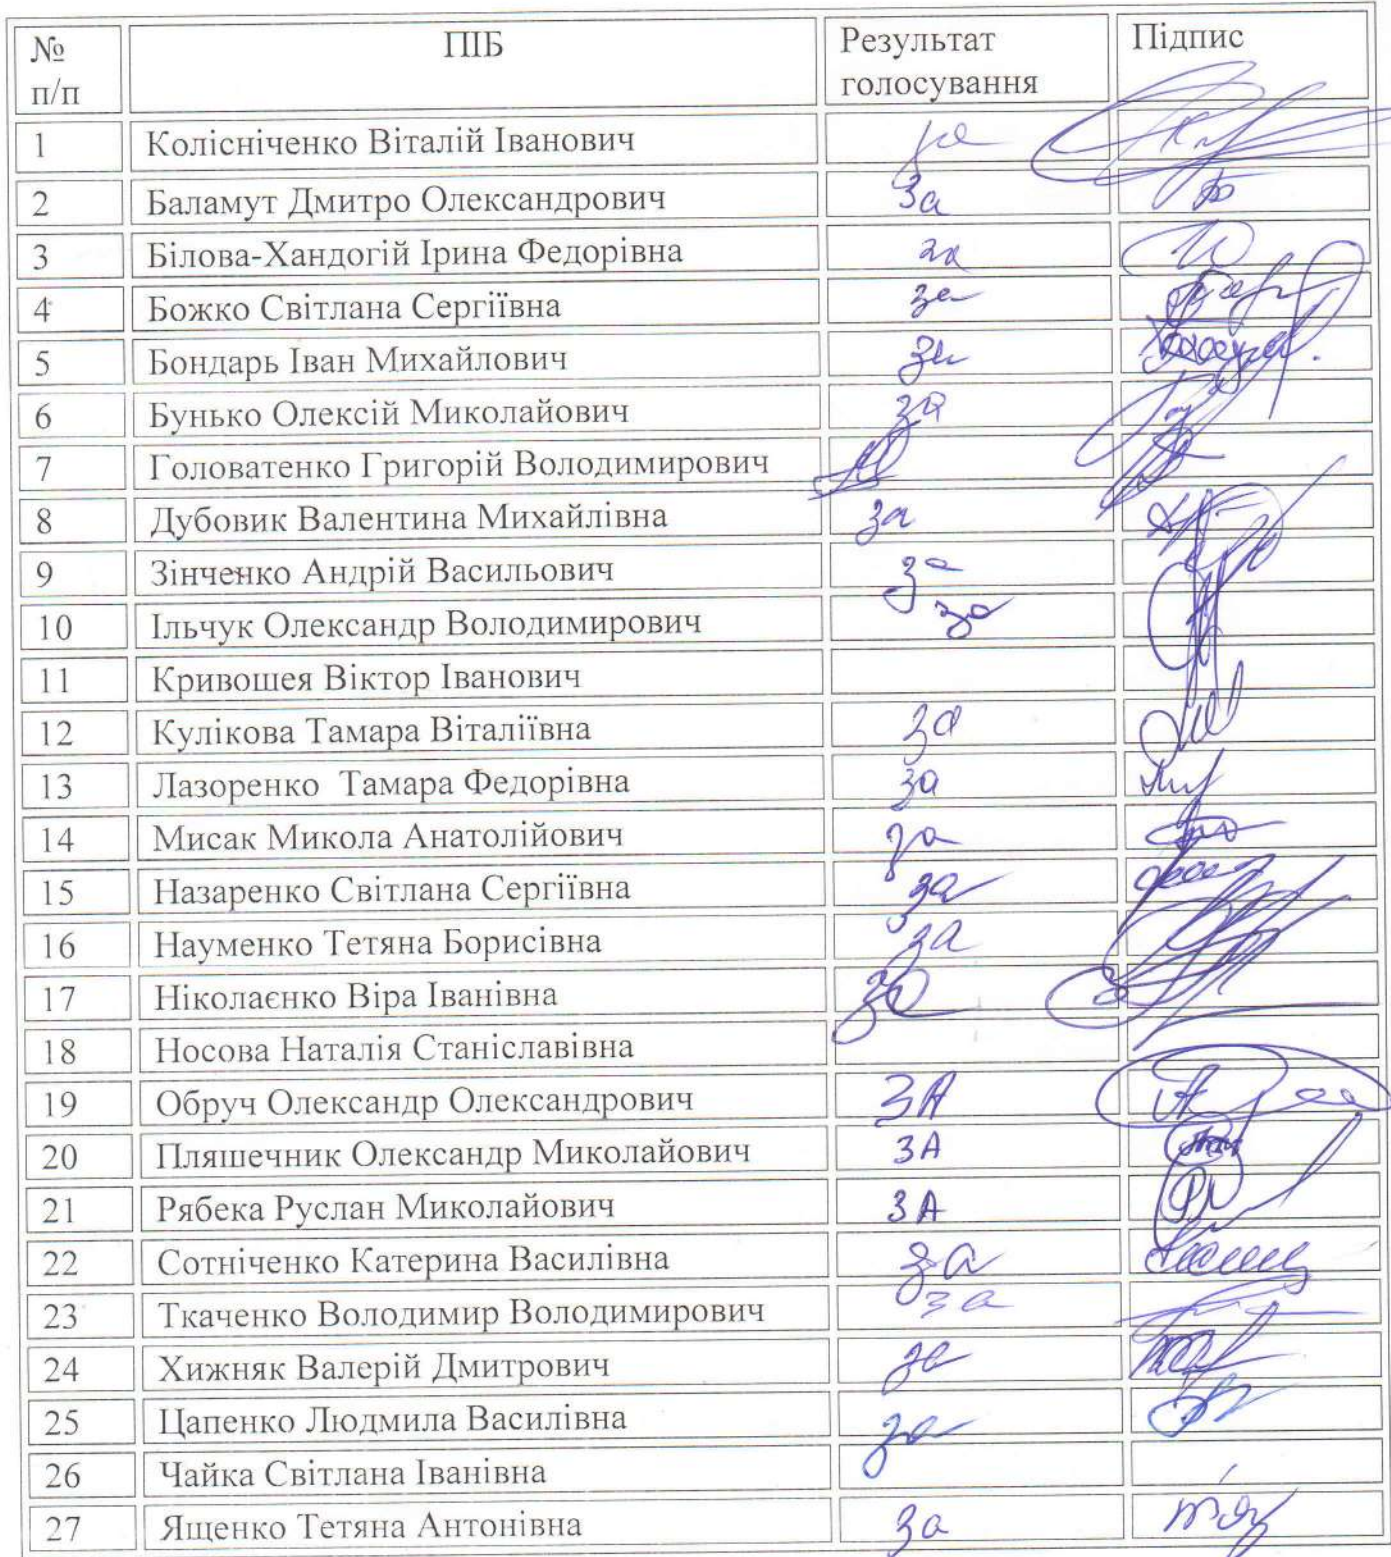 № п/п ПІБ Результат голосування Підпис
1 Колісніченко Віталій Іванович за
2 Баламут Дмитро Олександрович За
3 Білова-Хандогій Ірина Федорівна за
4 Божко Світлана Сергіївна за
5 Бондарь Іван Михайлович за
6 Бунько Олексій Миколайович за
7 Головатенко Григорій Володимирович
8 Дубовик Валентина Михайлівна за
9 Зінченко Андрій Васильович за
10 Ільчук Олександр Володимирович за
11 Кривошея Віктор Іванович
12 Кулікова Тамара Віталіївна за
13 Лазоренко Тамара Федорівна за
14 Мисак Микола Анатолійович за
15 Назаренко Світлана Сергіївна за
16 Науменко Тетяна Борисівна за
17 Ніколаєнко Віра Іванівна за
18 Носова Наталія Станіславівна
19 Обруч Олександр Олександрович ЗА
20 Пляшечник Олександр Миколайович ЗА
21 Рябека Руслан Миколайович ЗА
22 Сотніченко Катерина Василівна за
23 Ткаченко Володимир Володимирович за
24 Хижняк Валерій Дмитрович за
25 Цапенко Людмила Василівна за
26 Чайка Світлана Іванівна
27 Ященко Тетяна Антонівна за